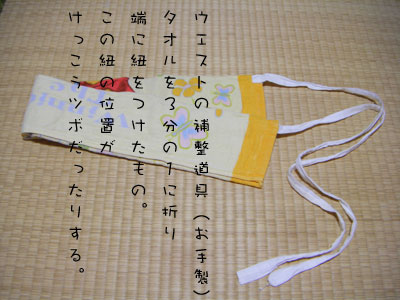 ウエストの補整道具(お手製)
タオルを3分の1に折り
端に紐をつけたもの。
この紐の位置が
けっこうツボだったりする。